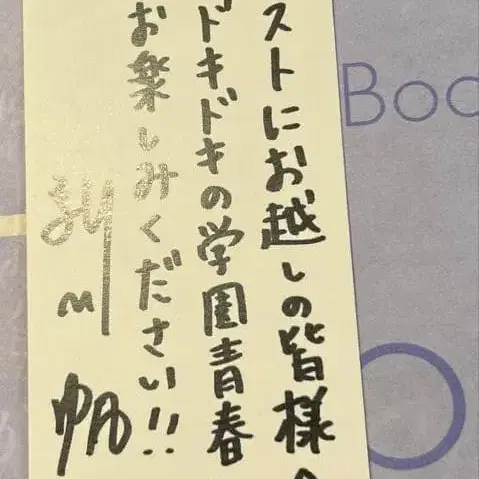 ストにお越しの皆様へ
ドキドキの学園青春
お楽しみください!!
帆
Boo